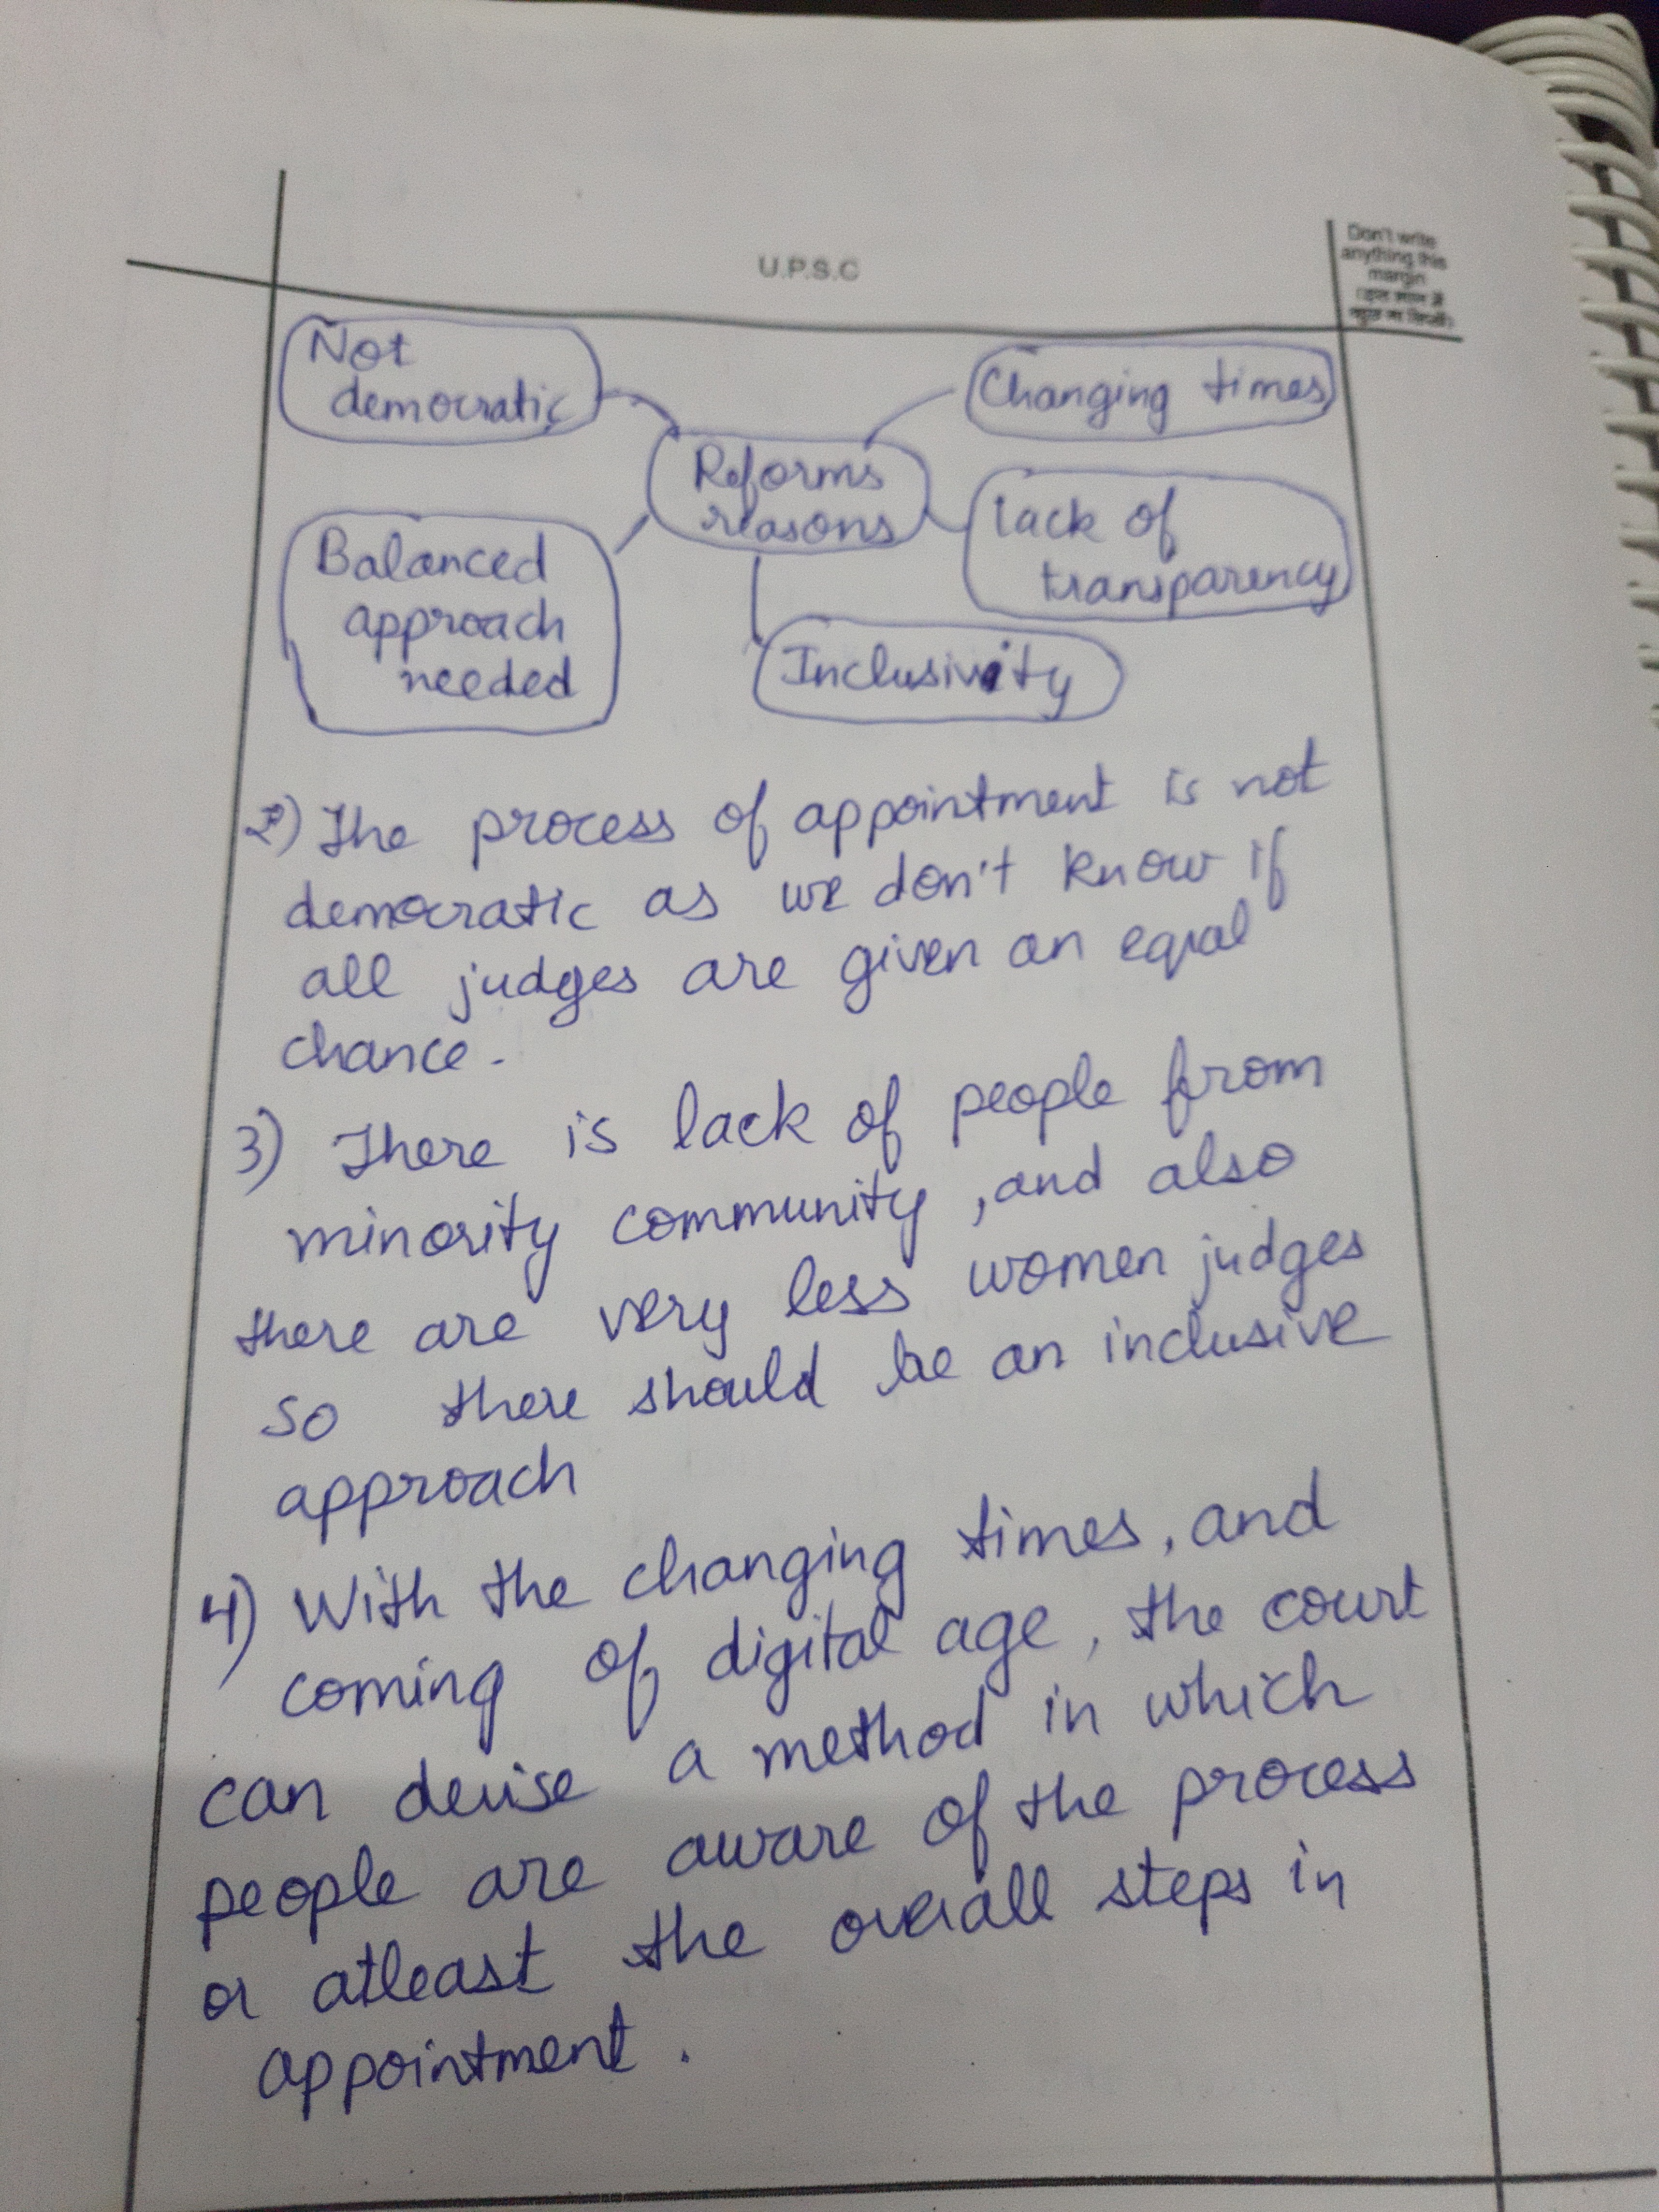 U.P.S.C
Don't write
anything this
margin
Not
democratic
Changing times
Reforms
reasons
Lack of
transparency
Balanced
approach
needed
Inclusivity
2) The process of appointment is not
democratic as we don't know if
all judges are given an equal
chance.
3) There is lack of people from
minority community, and also
there are very less women judges
so there should be an inclusive
approach
4) With the changing times, and
coming of digital age, the court
can devise a method in which
people are aware of the process
or atleast the overall steps in
appointment.